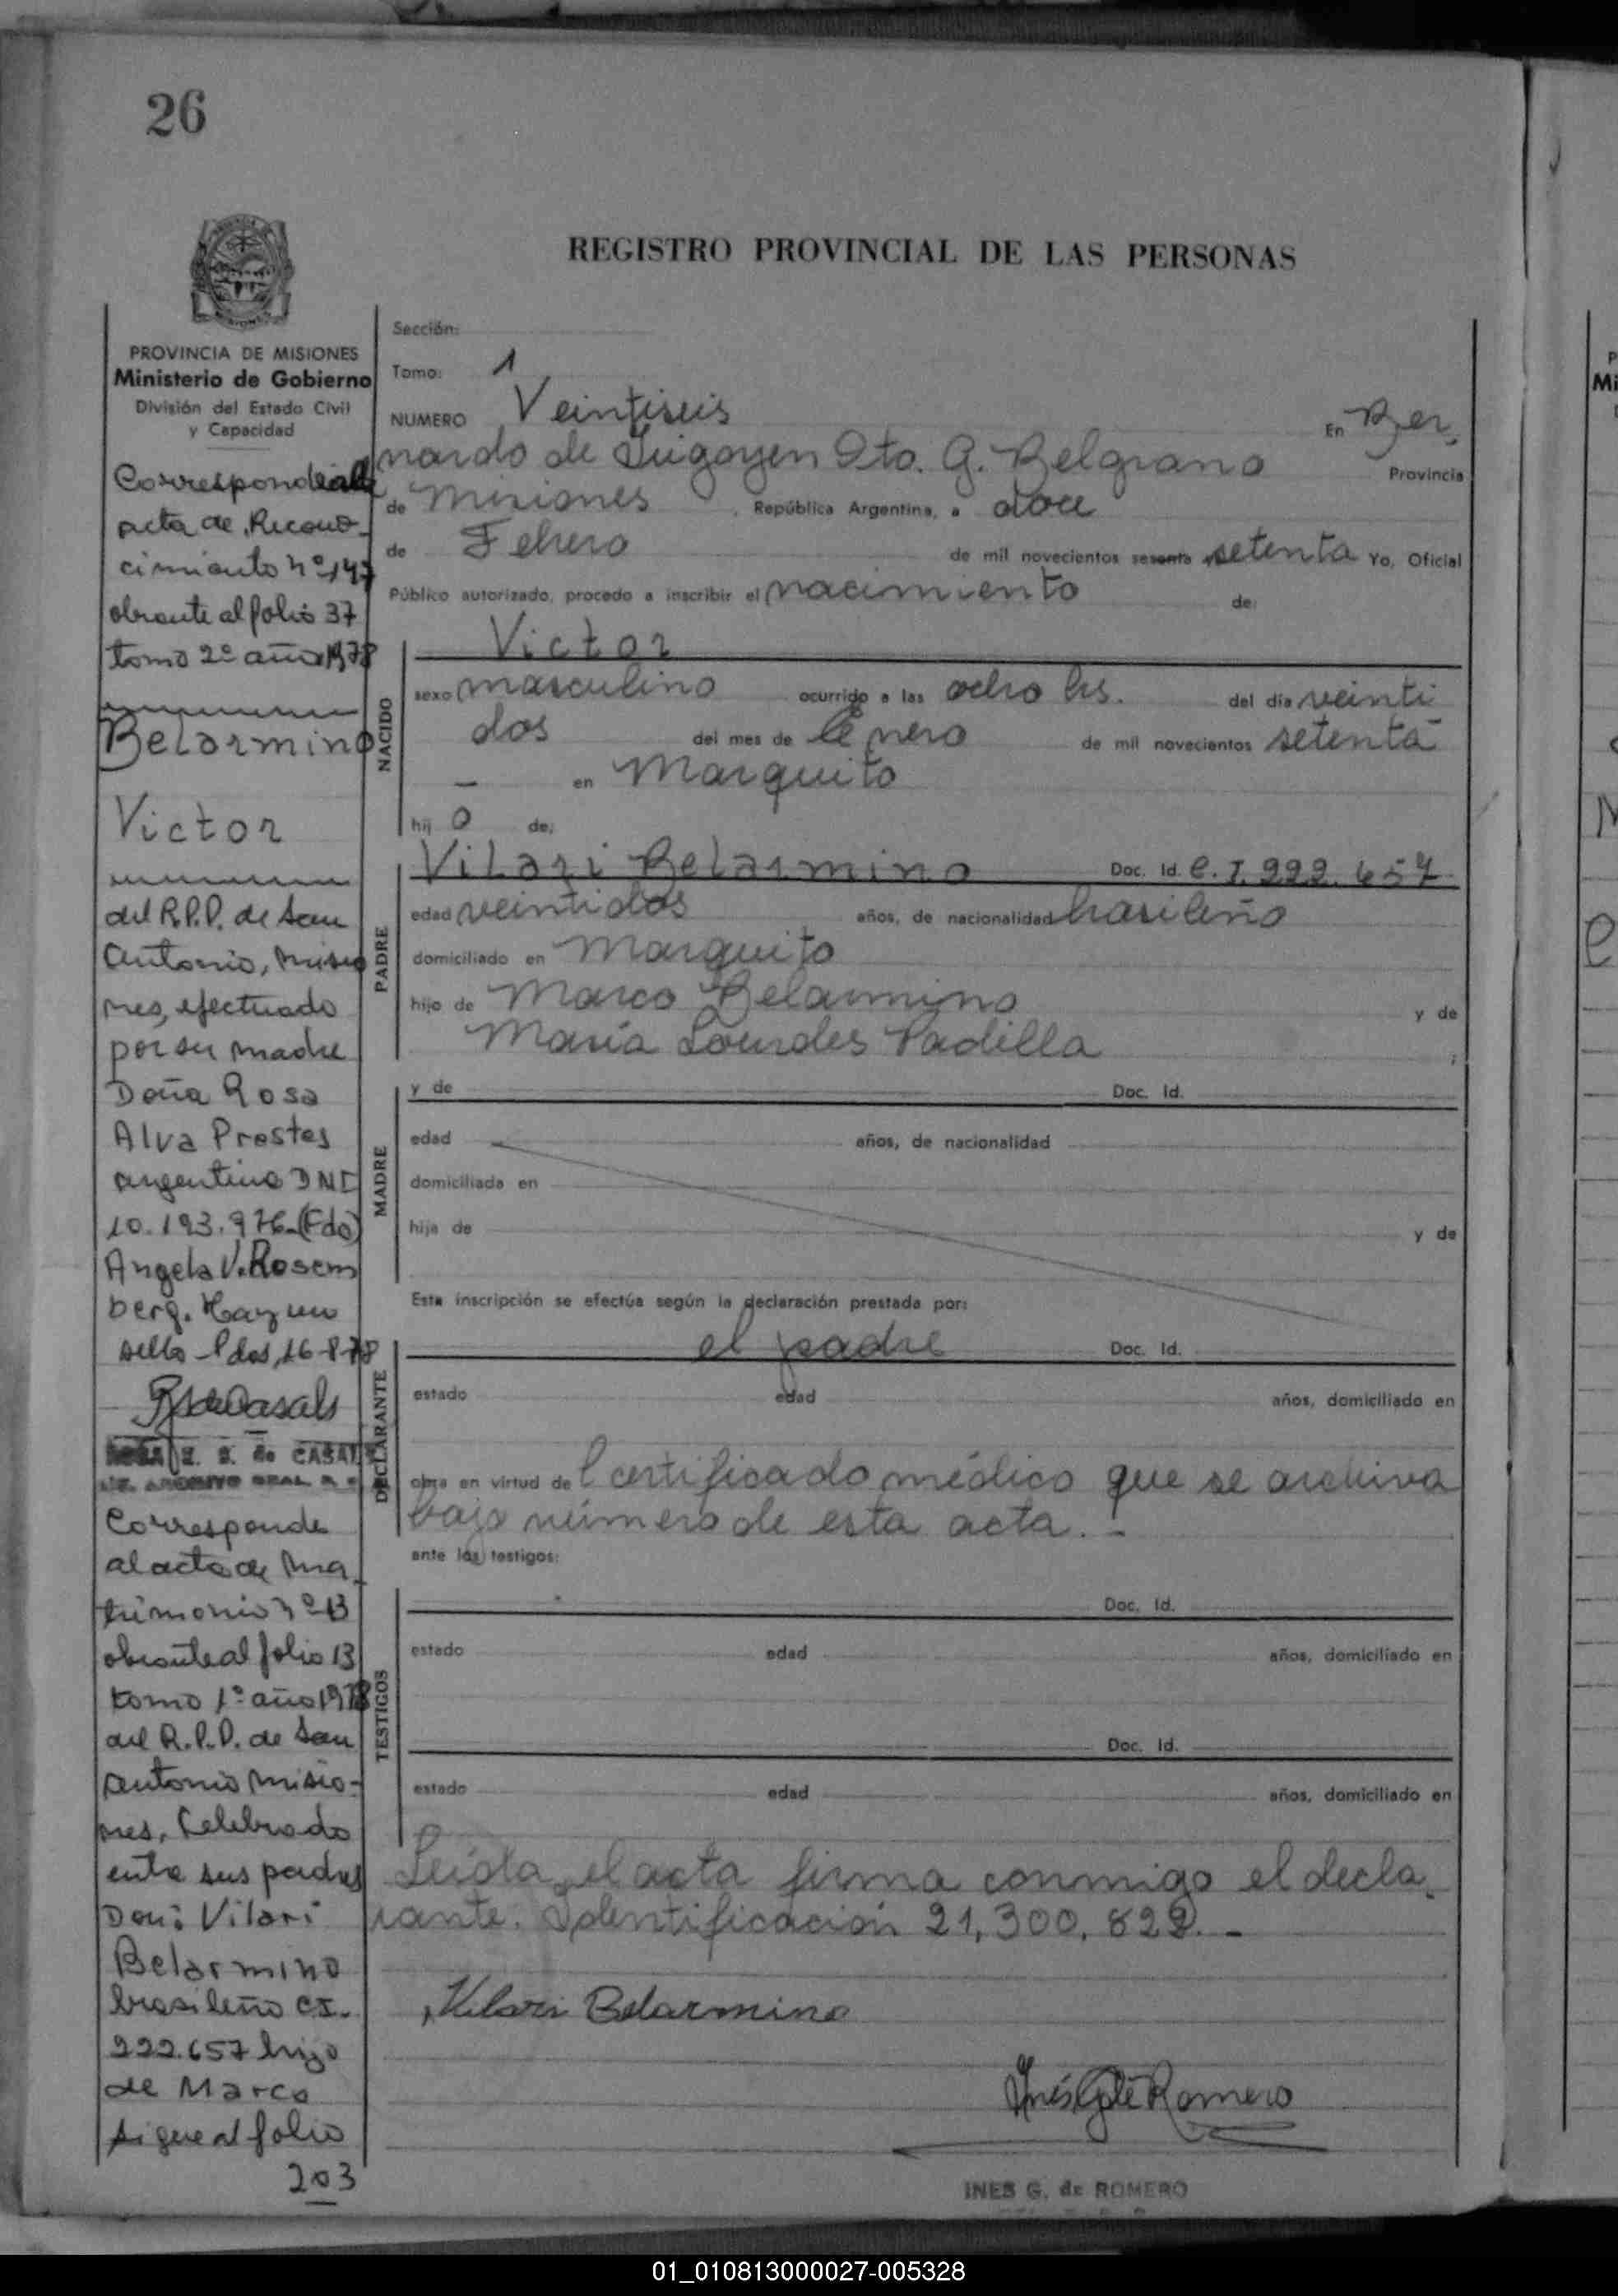 26
REGISTRO PROVINCIAL DE LAS PERSONAS
PROVINCIA DE MISIONES
Ministerio de Gobierno
División del Estado Civil
y Capacidad
Corresponde al
acta de Recono-
cimiento nº 147
obrante al folio 37
tomo 2º año 1978
Belarmino
Victor
del R.P.P. de San
Antonio, Misio
nes, efectuado
por su madre
Doña Rosa
Alva Prestes
argentina DNI
10.193.976-(Fdo)
Angela V. Rosem
berg. Hay un
sello - Pdas, 16-8-78
E. S. de CASALS
Corresponde
al acta de Ma_
trimonio nº 13
obrante al folio 13
tomo 1º año 1978
del R.P.P. de San
Antonio Misio-
nes, Celebrado
entre sus padres
Don: Vilari
Belarmino
brasileño CI.
222.657 hijo
de Marco
sigue al folio
203
Sección:
Tomo: 1
NUMERO Veintiseis En Ber,
nardo de Irigoyen Dto. G. Belgrano Provincia
de Misiones , República Argentina, a doce
de Febrero de mil novecientos sesenta setenta Yo, Oficial
Público autorizado, procedo a inscribir el nacimiento de:
Victor
NACIDO
sexo masculino ocurrido a las ocho hs. del día veinti
dos del mes de Enero de mil novecientos setenta
— en Marquito
hij o de:
PADRE
Vilari Belarmino Doc. Id. C.I. 222.657
edad veintidos años, de nacionalidad brasileño
domiciliado en Marquito
hijo de Marco Belarmino y de
María Lourdes Padilla ;
MADRE
y de Doc. Id.
edad años, de nacionalidad
domiciliada en
hija de y de
Esta inscripción se efectúa según la declaración prestada por:
DECLARANTE
el padre Doc. Id.
estado edad años, domiciliado en
obra en virtud de l certificado médico que se archiva
bajo número de esta acta. -
ante los testigos:
TESTIGOS
Doc. Id.
estado edad años, domiciliado en
Doc. Id.
estado edad años, domiciliado en
Leída el acta firma conmigo el decla_
rante. Identificación 21,300,822. -
Vilari Belarmino
Inés G. de Romero
INES G. de ROMERO
01_010813000027-005328